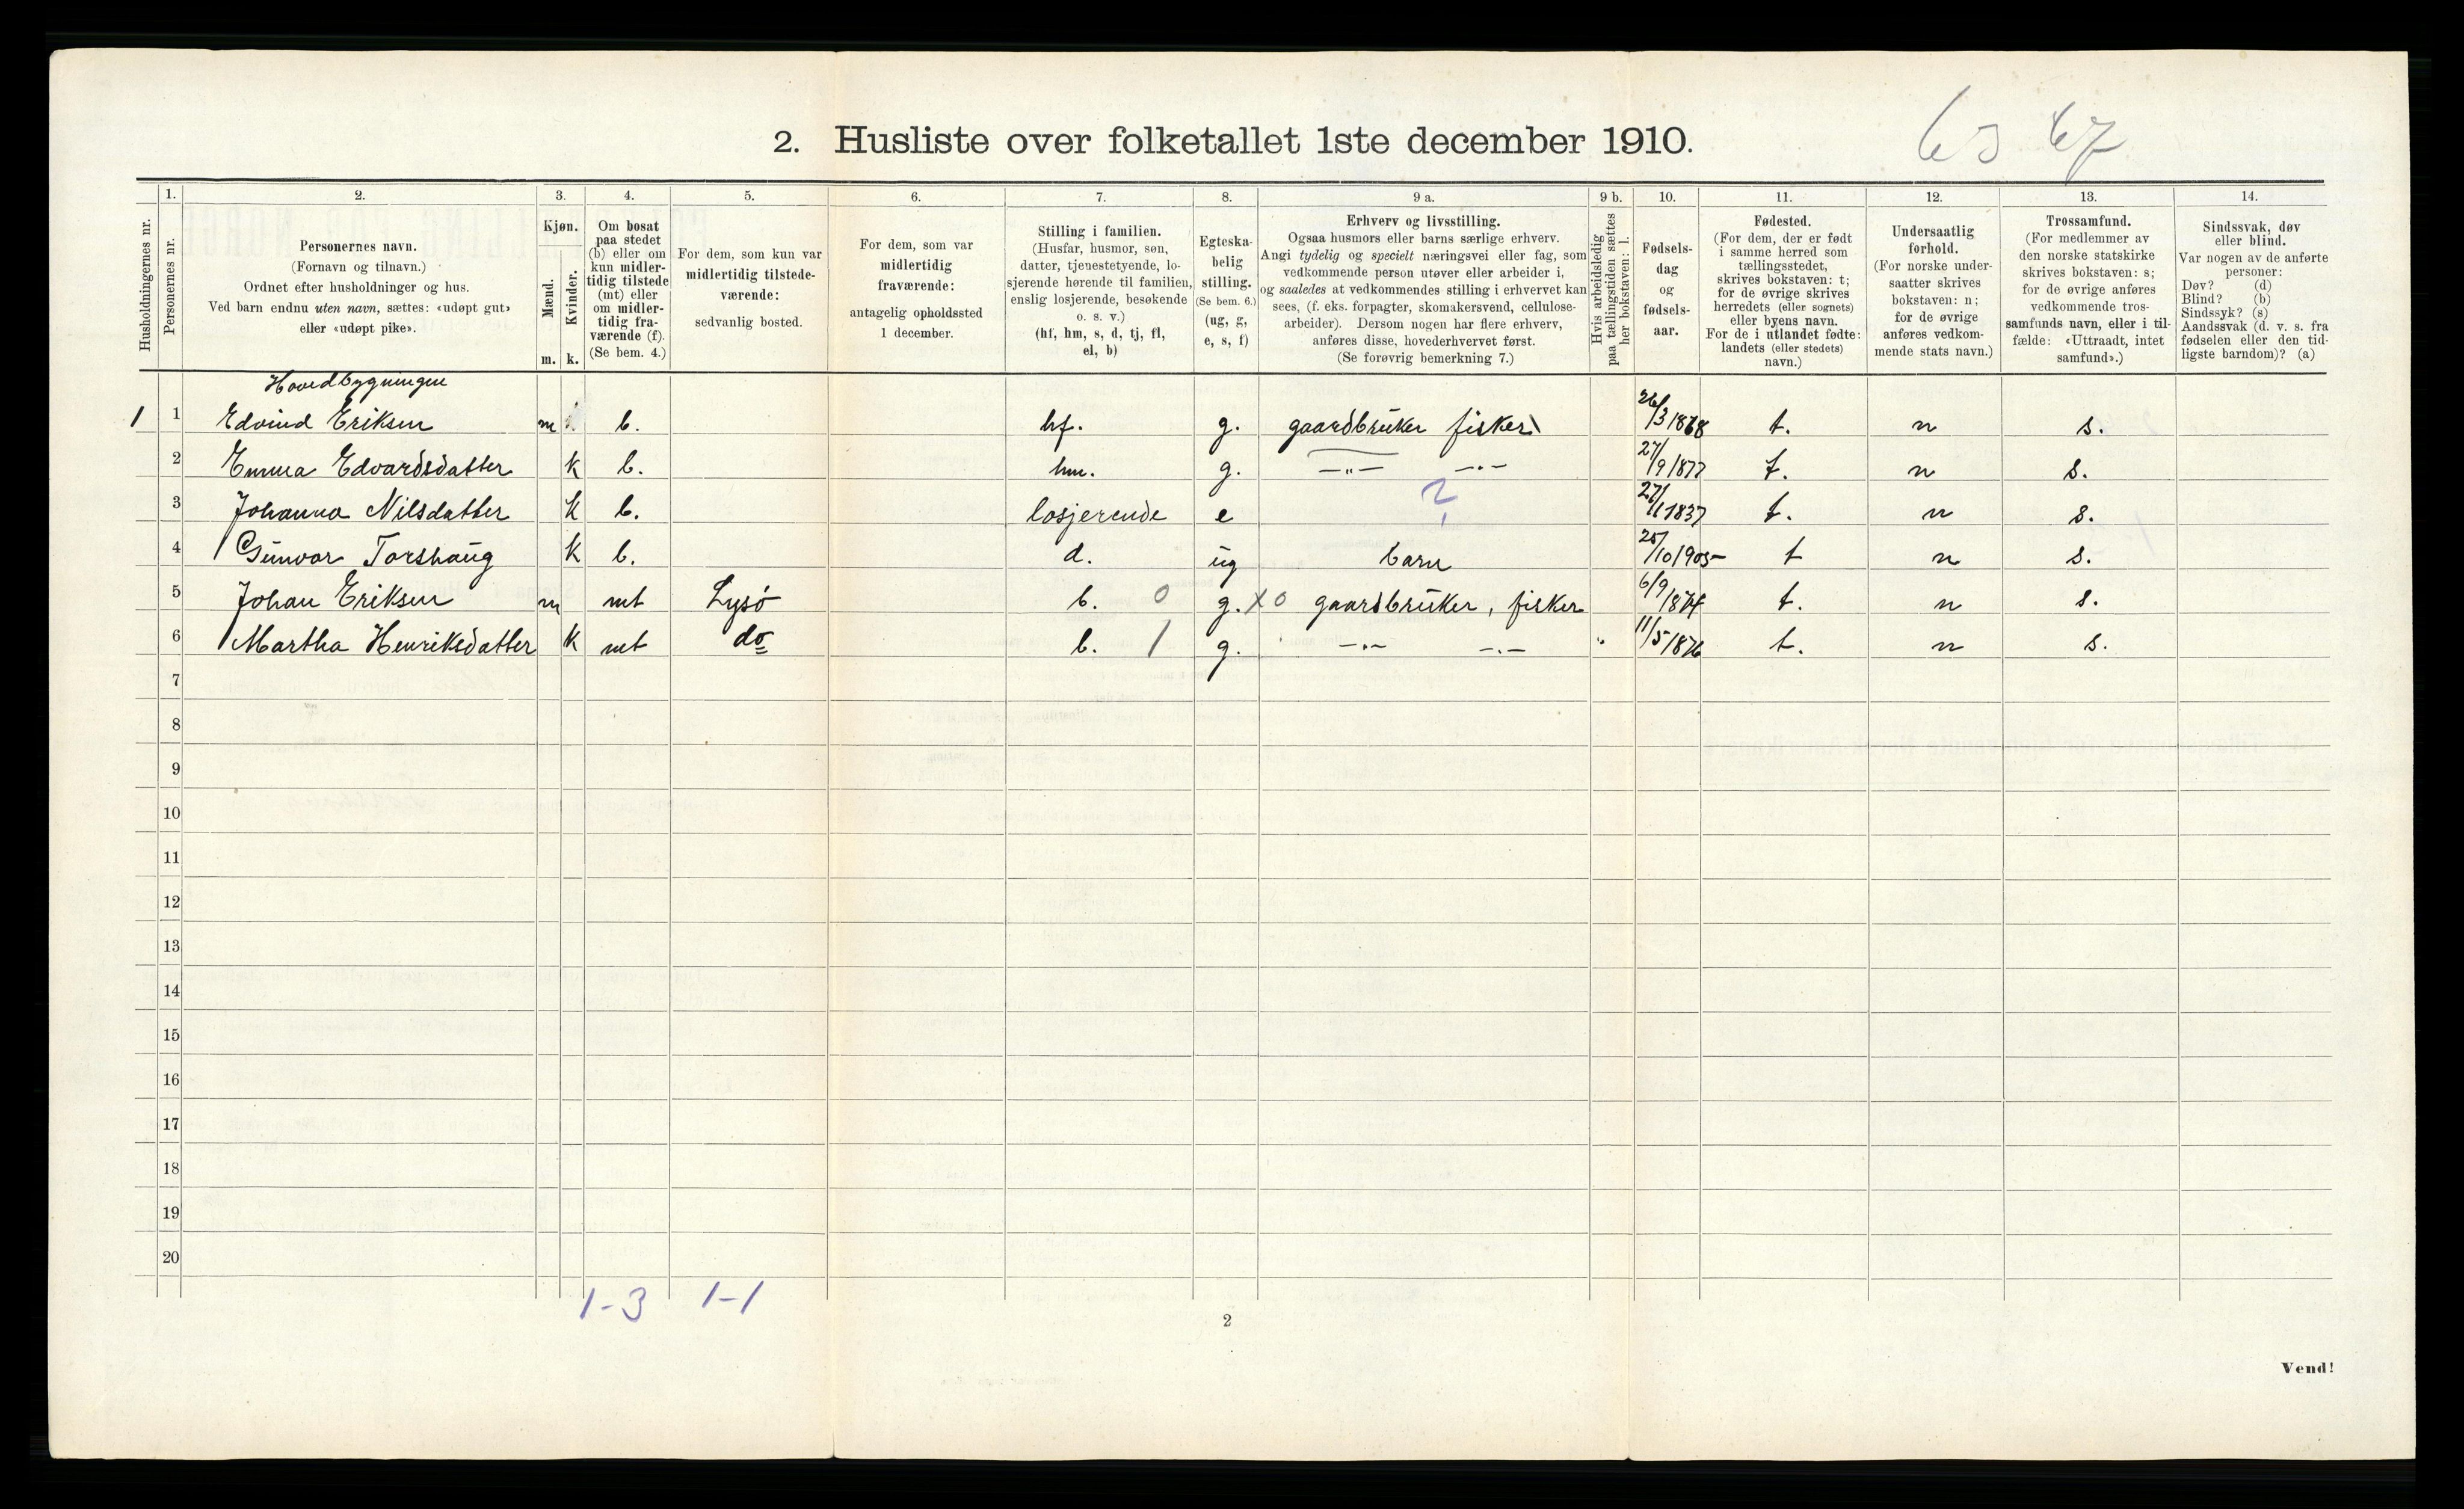 2. Husliste over folketallet 1ste december 1910.
Husholdningernes nr.
1.
Personernes nr.
2.
Personernes navn.
(Fornavn og tilnavn.)
Ordnet efter husholdninger og hus.
Ved barn endnu uten navn, sættes: «udøpt gut»
eller «udøpt pike».
3.
Kjøn.
Mænd.
m.
Kvinder.
k.
4.
Om bosat
paa stedet
(b) eller om
kun midler-
tidig tilstede
(mt) eller
om midler-
tidig fra-
værende (f).
(Se bem. 4.)
5.
For dem, som kun var
midlertidig tilstede-
værende:
sedvanlig bosted.
6.
For dem, som var
midlertidig
fraværende:
antagelig opholdssted
1 december.
7.
Stilling i familien.
(Husfar, husmor, søn,
datter, tjenestetyende, lo-
sjerende hørende til familien,
enslig losjerende, besøkende
o. s. v.)
(hf, hm, s, d, tj, fl,
el, b)
8.
Egteska-
belig
stilling.
(Se bem. 6.)
(ug, g,
e, s, f)
9 a.
Erhverv og livsstilling.
Ogsaa husmors eller barns særlige erhverv.
Angi tydelig og specielt næringsvei eller fag, som
vedkommende person utøver eller arbeider i,
og saaledes at vedkommendes stilling i erhvervet kan
sees, (f. eks. forpagter, skomakersvend, cellulose-
arbeider). Dersom nogen har flere erhverv,
anføres disse, hovederhvervet først.
(Se forøvrig bemerkning 7.)
9 b.
Hvis arbeidsledig
paa tællingstiden sættes
her bokstaven: l.
10.
Fødsels-
dag
og
fødsels-
aar.
11.
Fødested.
(For dem, der er født
i samme herred som
tællingsstedet,
skrives bokstaven: t;
for de øvrige skrives
herredets (eller sognets)
eller byens navn.
For de i utlandet fødte:
landets (eller stedets)
navn.)
12.
Undersaatlig
forhold.
(For norske under-
saatter skrives
bokstaven: n;
for de øvrige
anføres vedkom-
mende stats navn.)
13.
Trossamfund.
(For medlemmer av
den norske statskirke
skrives bokstaven: s;
for de øvrige anføres
vedkommende tros-
samfunds navn, eller i til-
fælde: «Uttraadt, intet
samfund».)
14.
Sindssvak, døv
eller blind.
Var nogen av de anførte
personer:
Døv? (d)
Blind? (b)
Sindssyk? (s)
Aandssvak (d. v. s. fra
fødselen eller den tid-
ligste barndom)? (a)
Hovedbygningen
1 1 Edvind Eriksen m b. hf. g. gaardbruker fisker 26/3 1868 t. n s.
2 Emma Edvardsdatter k b. hm. g. —„— —„— 27/9 1877 t. n s.
3 Johanna Nilsdatter k b. losjerende e ? 27/1 1837 t. n s.
4 Gunvor Torshaug k b. d. ug barn 25/10 1905 t n s.
5 Johan Eriksen m mt Lysö b. 0 g. X0 gaardbruker, fisker 6/9 t. n s.
6 Martha Henriksdatter k mt do b. 1 g. —„— —„— 11/5 1876 t. n s.
7
8
9
10
11
12
13
14
15
16
17
18
19
20
1-3 1-1
2
Vend!